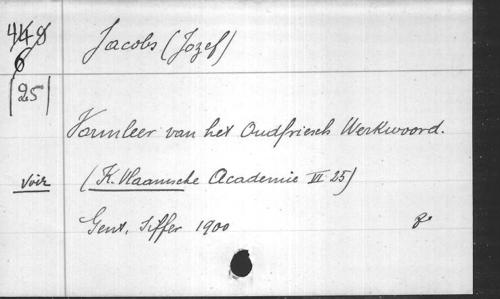 449
6
[25]
Jacobs (Jozef)
Vormleer van het Oudfriesch Werkwoord.
Voir
(K. Vlaamsche Academie VI 25)
Gent, Siffer 1900
8°